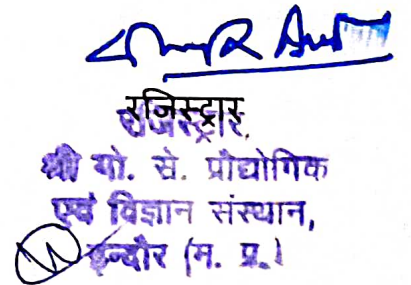 रजिस्ट्रार
रजिस्ट्रार,
श्री गो. से. प्रौद्योगिक
एवं विज्ञान संस्थान,
इन्दौर (म. प्र.)